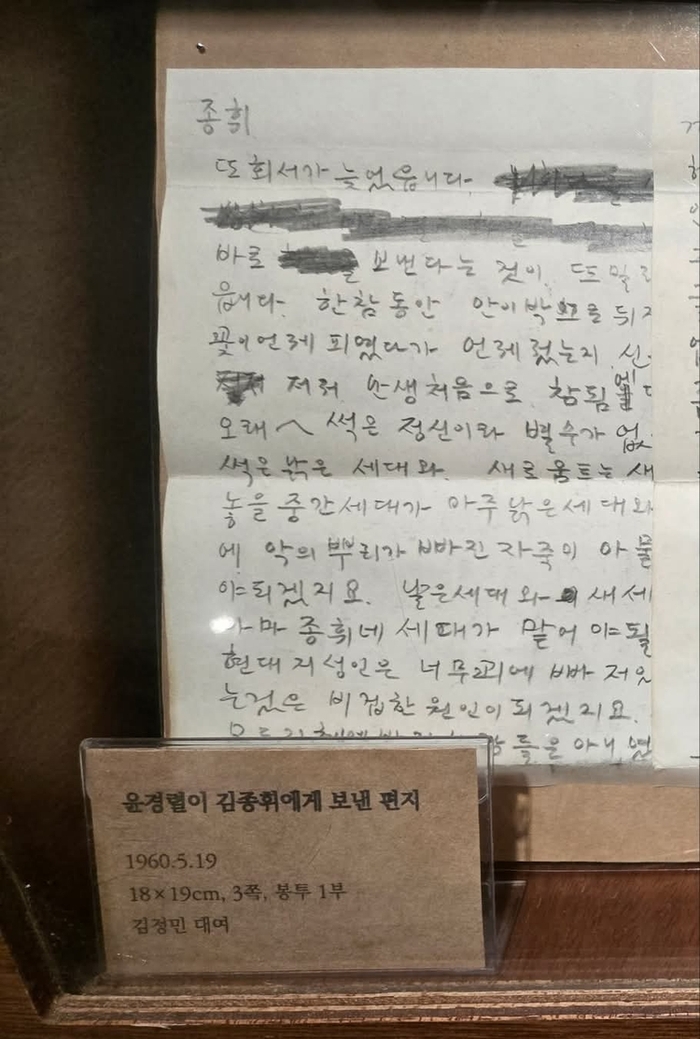 종휘
또 회서가 늦었읍니다.
바로 보낸다는 것이, 또 밀리
읍니다. 한참동안 안이박으로 뒤지
꽃이언레 피였다가 언레 졌는지 신
저려 난생처음으로, 참됨에
오래 썩은 정신이라 별 수가 없
썩은 낡은 세대와. 새로움트는 새
놓을 중간세대가 아주 낡은세대와
에 악의 뿌리가 빠진 자죽이 아물
야되겠지요. 낡은세대와 새 세
아마 종휘네 세대가 맡어야될
현대 지성인은 너무 빠저있
는것은 비겁한 원인이되겠지요.
들은 아니였
윤경렬이 김종휘에게 보낸 편지
1960.5.19
18×19cm, 3쪽, 봉투 1부
김정민 대여